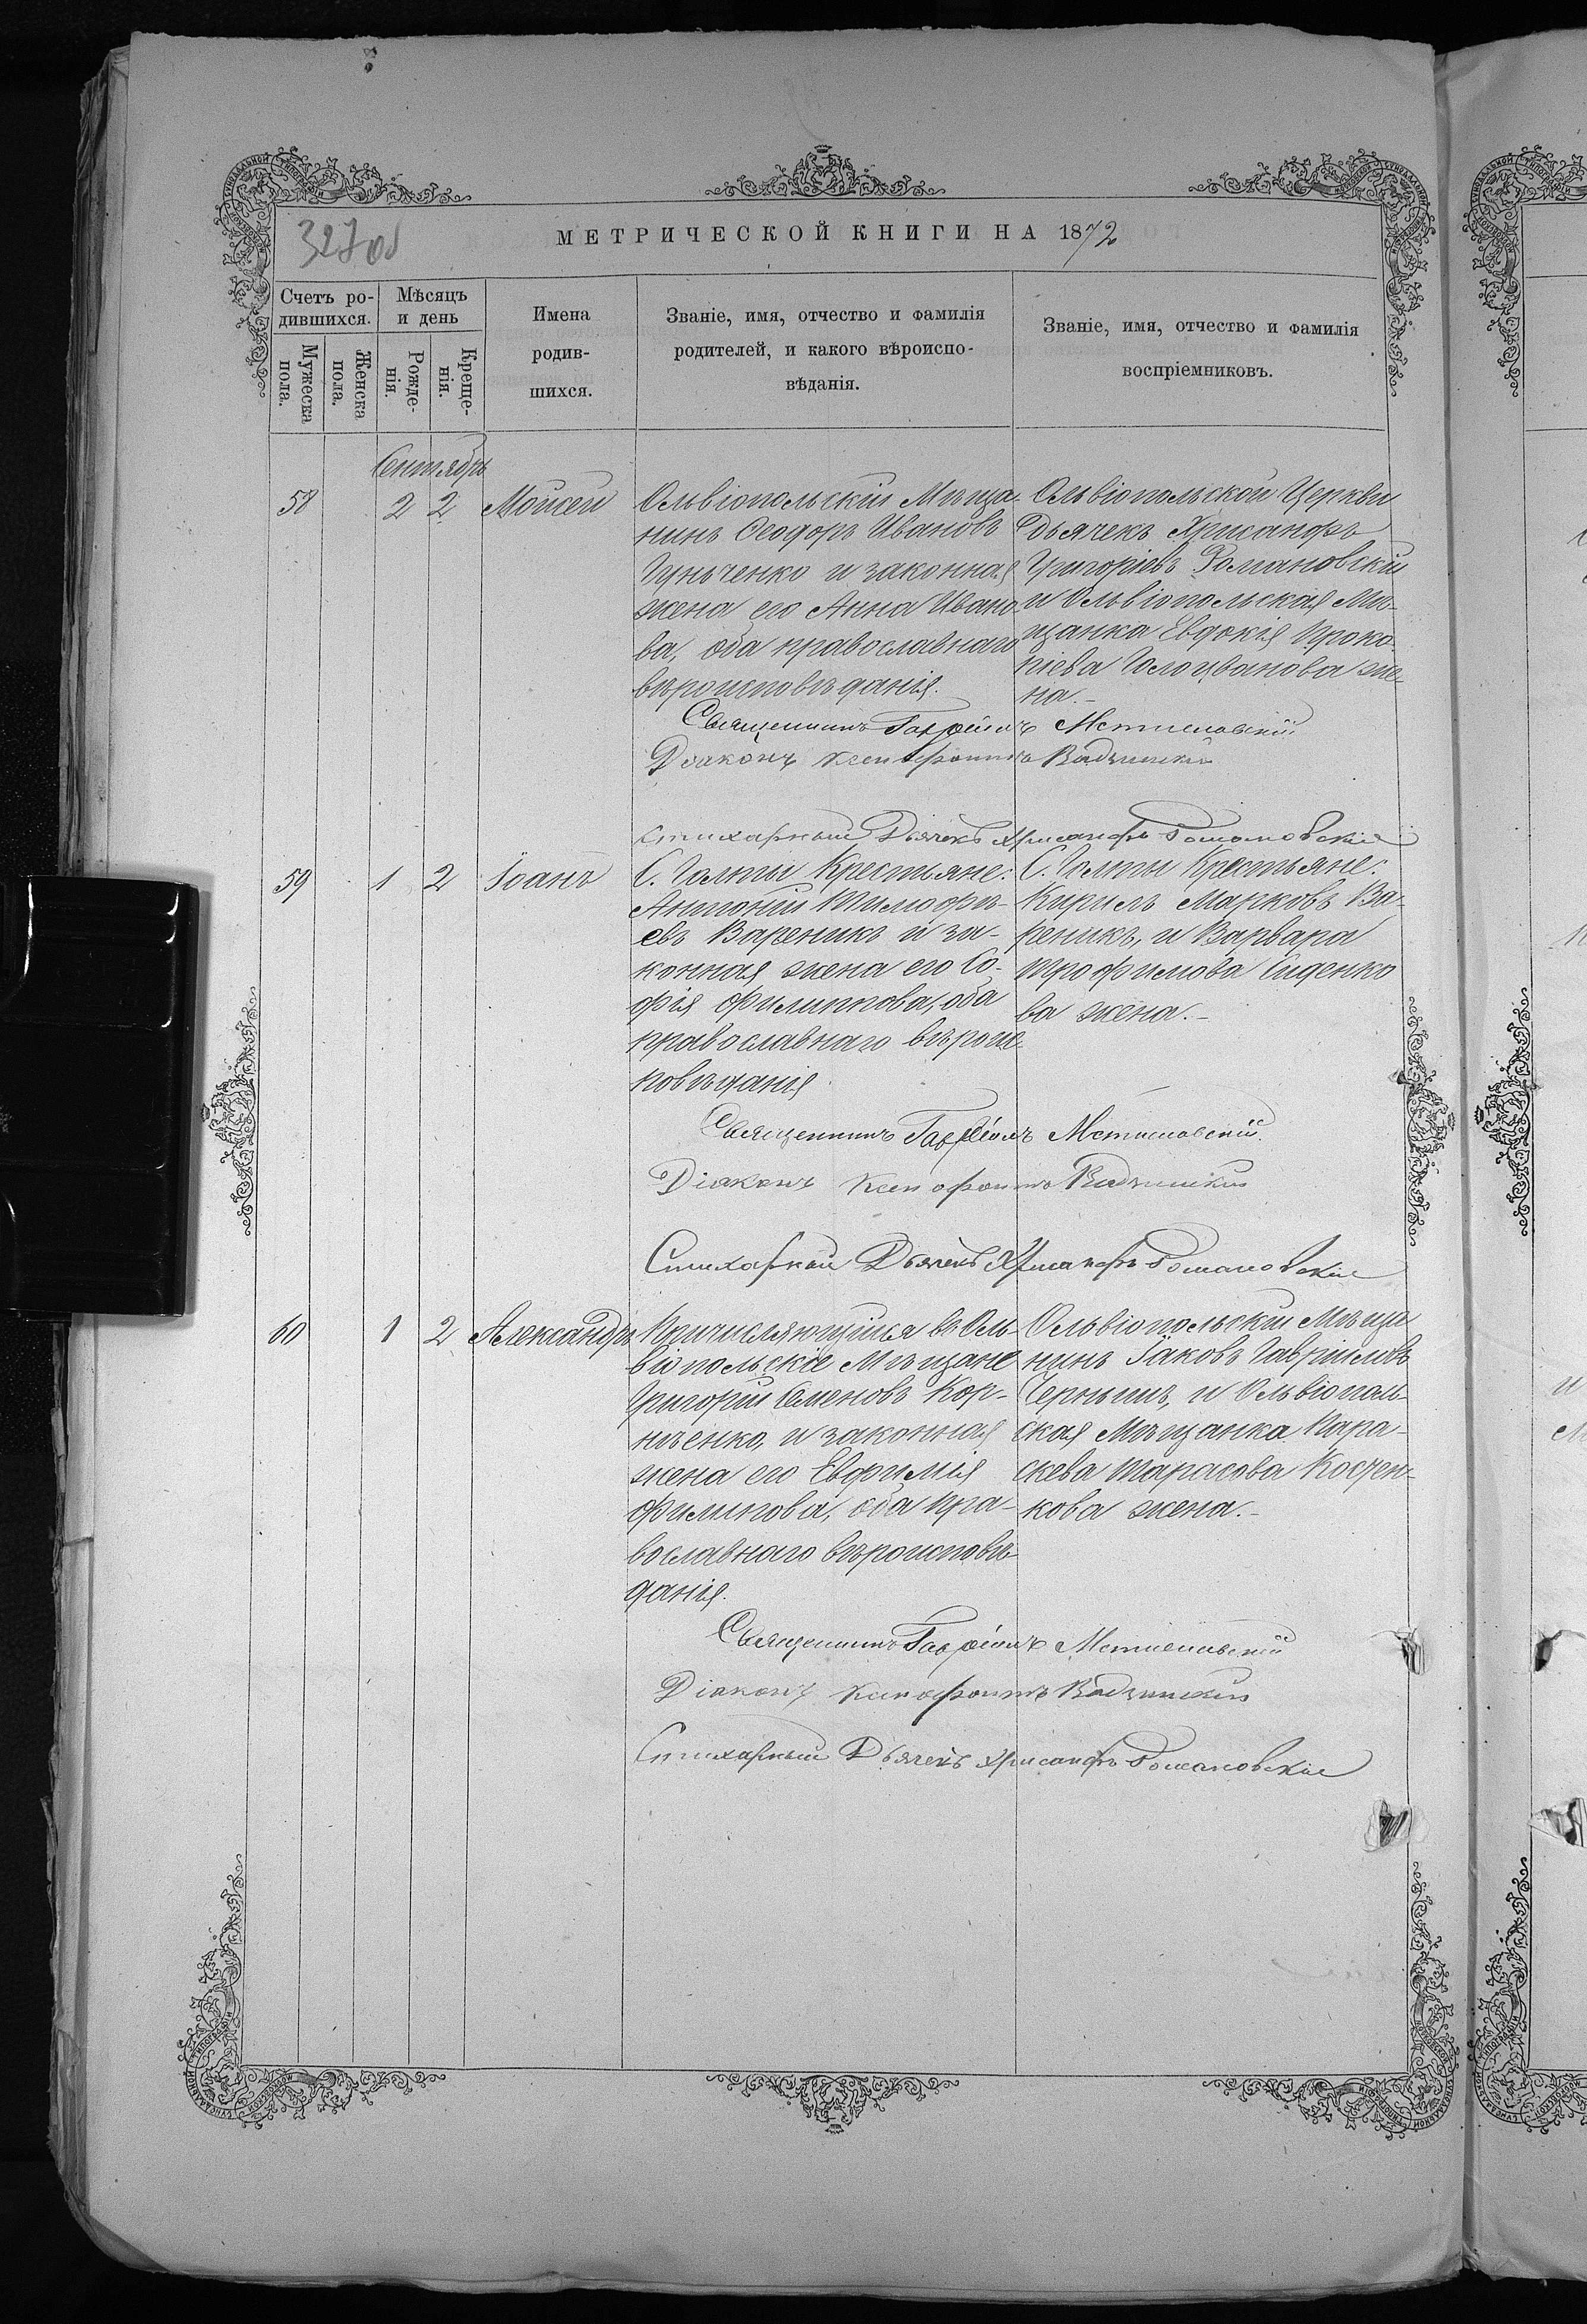 327 об
МЕТРИЧЕСКОЙ КНИГИ НА 1872
Счетъ ро-
дившихся.
Мѣсяцъ
и день
Мужеска
пола.
Женска
пола.
Рожде-
нія.
Креще-
нія.
Имена
родив-
шихся.
Званіе, имя, отчество и фамилія
родителей, и какого вѣроиспо-
вѣданія.
Званіе, имя, отчество и фамилія
воспріемниковъ.
Сентябрь
58 2 2 Моисей
Ольвіопольскій Мѣща-
нинъ Ѳеодоръ Ивановъ
и законная
жена его Анна Ивано-
ва, оба православнаго
вѣроисповѣданія.
Ольвіопольской Церкви
Дьячекъ Хрисанфъ
Григоріевъ Романовскій
и Ольвіопольская Мѣ-
щанка Евдокія Проко-
піева Голоцванова же-
на.-
Священникъ Гавріилъ Мстиславскій
Діаконъ Ксенофонтъ
Стихарный Дьячекъ Хрисанфъ Романовскій
59 1 2 Іоанъ
С. Голты Крестьяне:
Антоній Тимофѣ-
евъ Вареникъ и за-
конная жена его Со-
фія Филиппова, оба
православнаго вѣроис-
повѣданія
С. Голты Крестьяне:
Кирилъ Марковъ Ва-
реникъ, и Варвара
Трофимова Сиденко
ва жена.-
Священникъ Гавріилъ Мстиславскій.
Діаконъ Ксенофонтъ
Стихарный Дьячекъ Хрисанфъ Романовскій
60 1 2 Александръ
Причисляющіися въ Оль-
віопольскіе Мѣщане
Григорій Семеновъ Кор-
нѣенко, и законная
жена его Евфимія
Филипова, оба пра-
вославнаго вѣроисповѣ-
данія.
Ольвіопольскій Мѣща
нинъ Іаковъ Гавріиловъ
Чернышъ, и Ольвіополь-
ская Мѣщанка Пара-
скева Тарасова Косцен-
кова жена.-
Священникъ Гавріилъ Мстиславскій
Діаконъ Ксенофонтъ
Стихарный Дьячекъ Хрисанфъ Романовскій